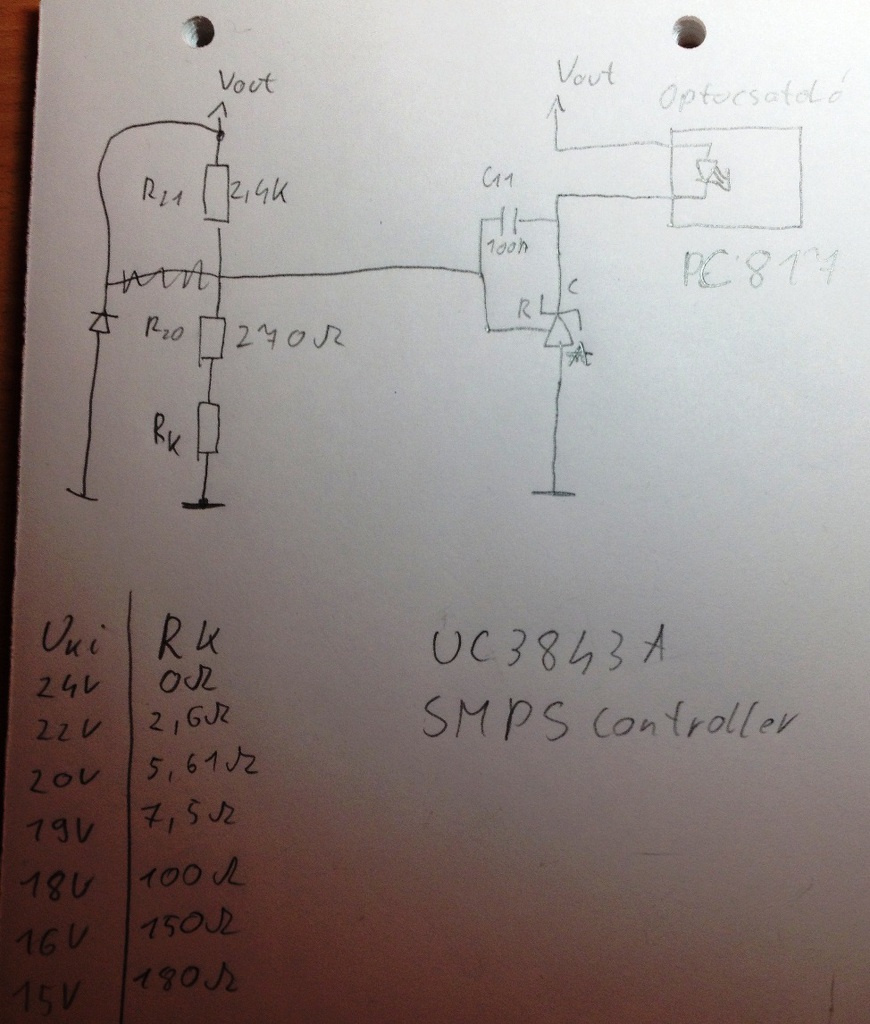 Vout
Vout
Optocsatoló
R21 2,4K
C11
100n
PC817
C
R
R20 270Ω
RK
Uki RK
24V 0Ω
22V 2,6Ω
20V 5,61Ω
19V 7,5Ω
18V 100Ω
16V 150Ω
15V 180Ω
UC3843A
SMPS controller